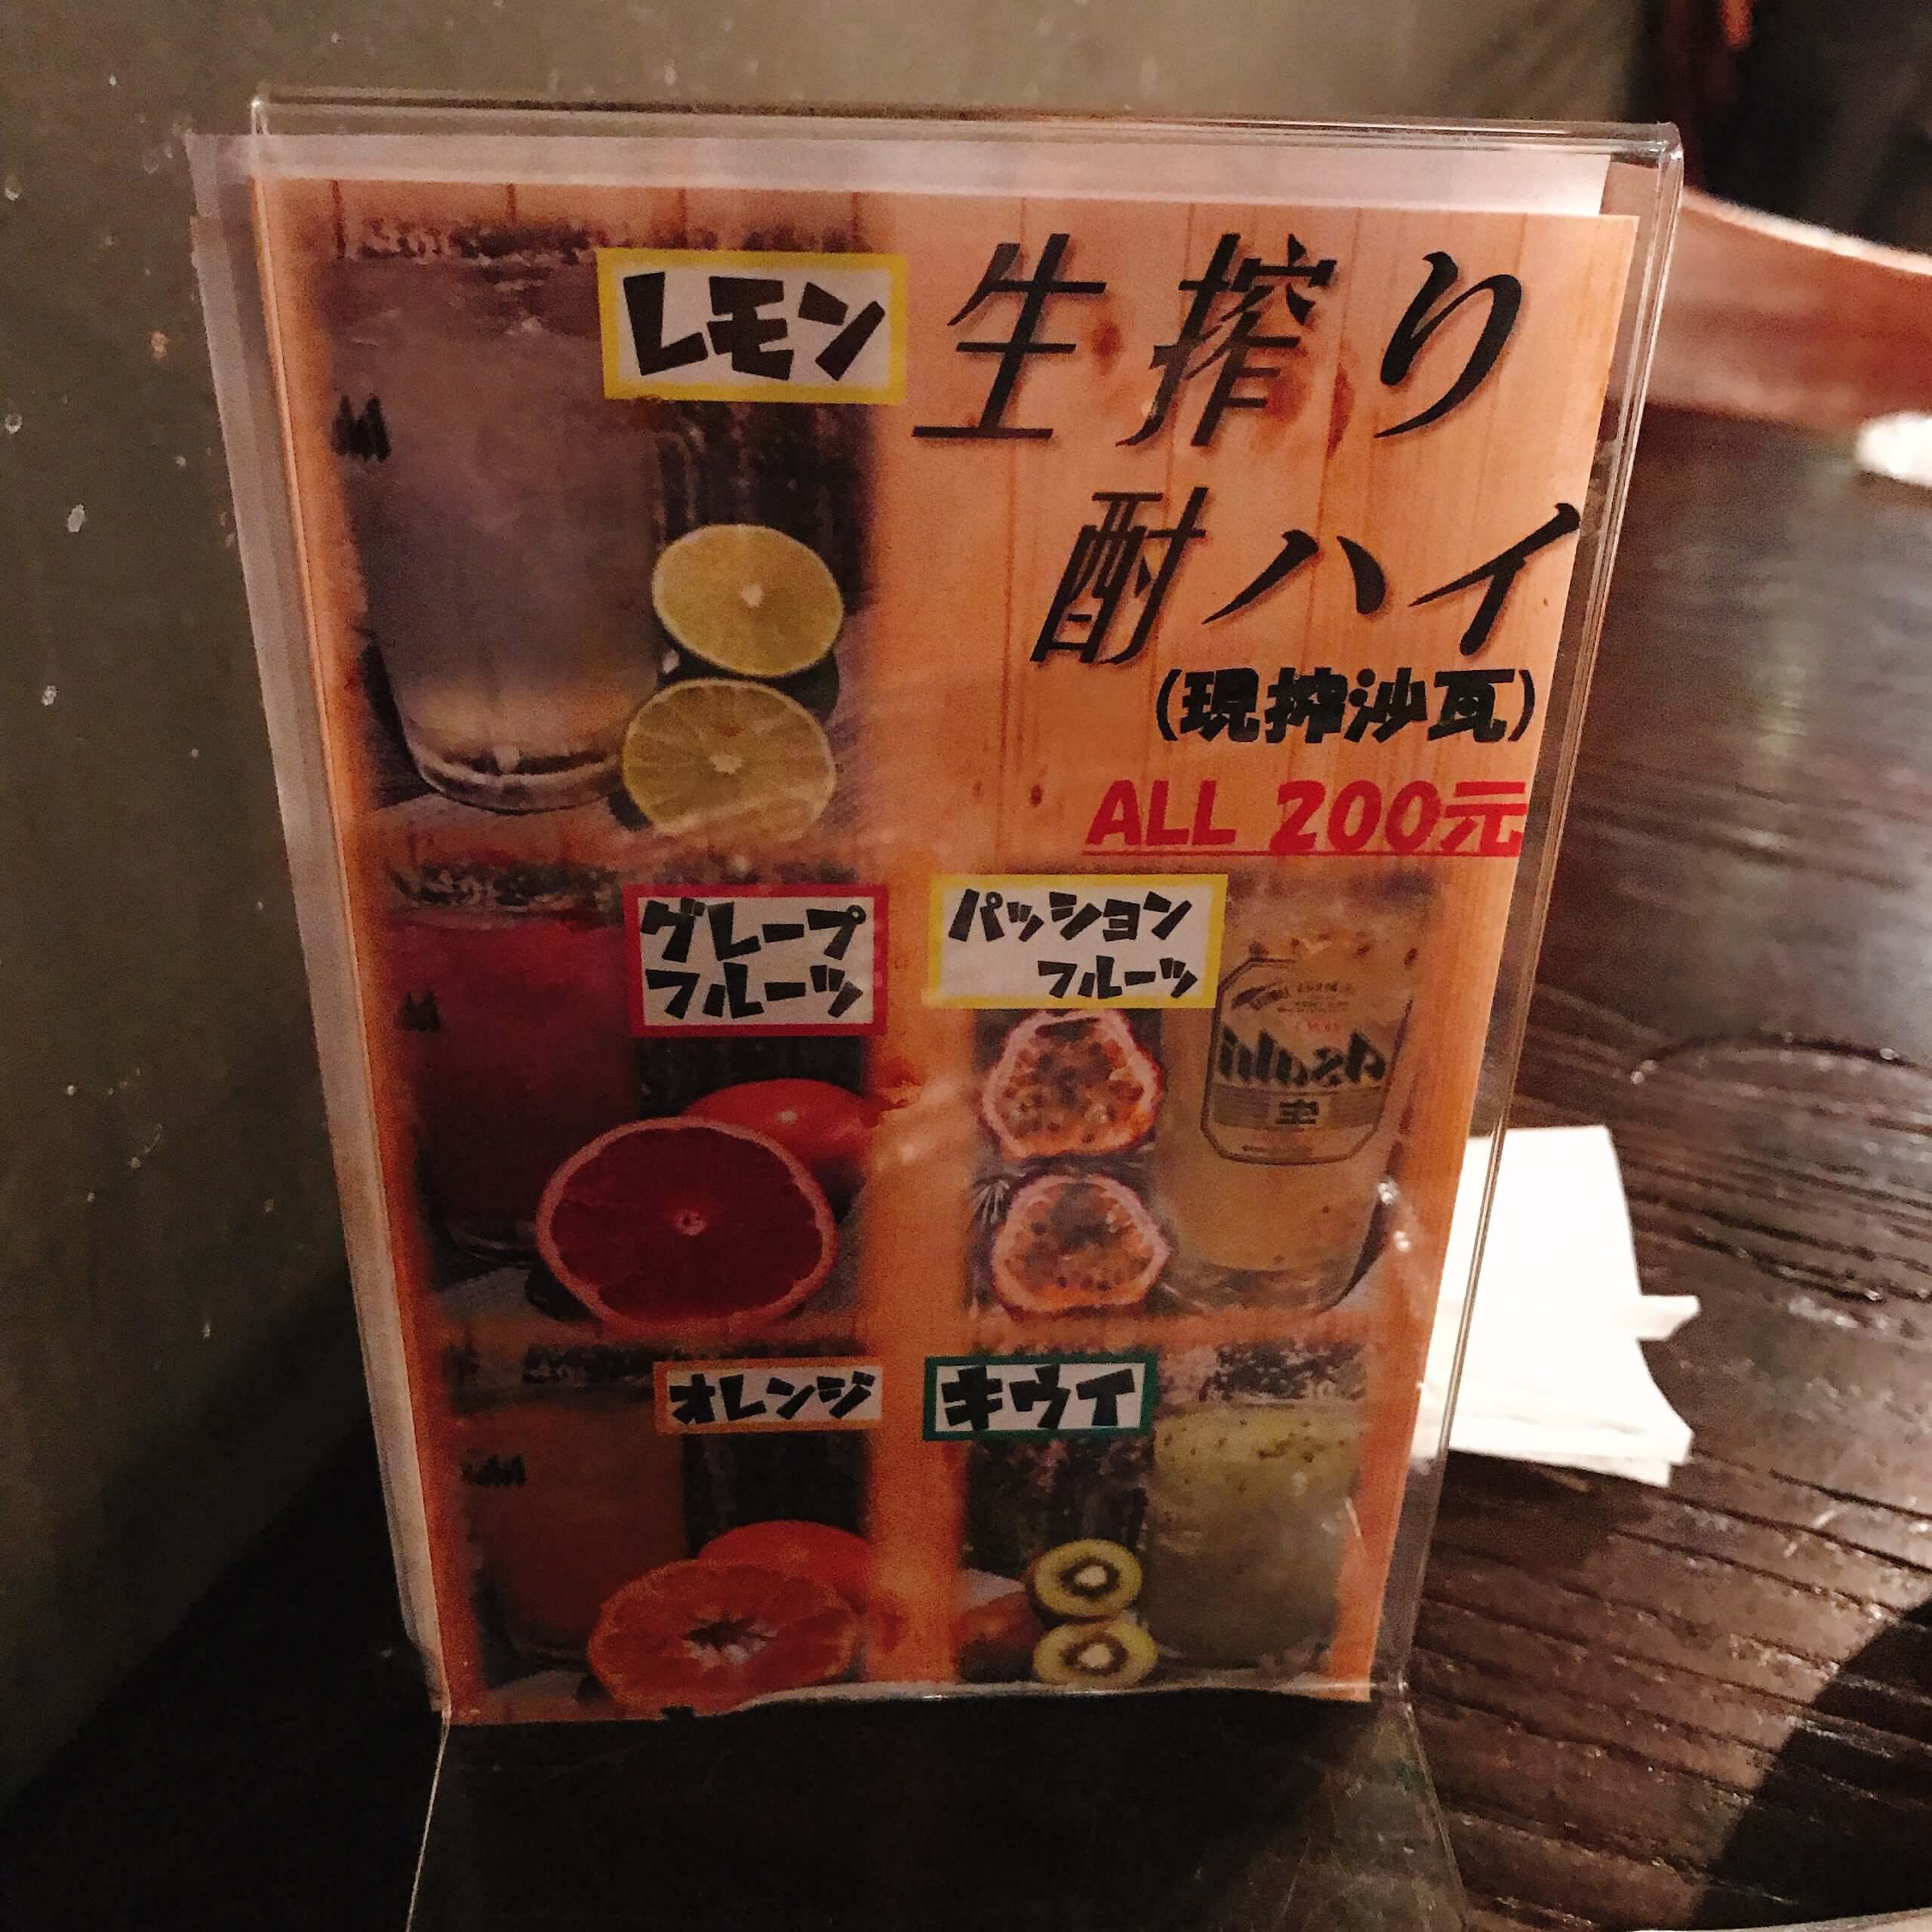 レモン
生搾り
酎ハイ
(現搾沙瓦)
ALL 200元
グレープ
フルーツ
パッション
フルーツ
Asahi
オレンジ
キウイ